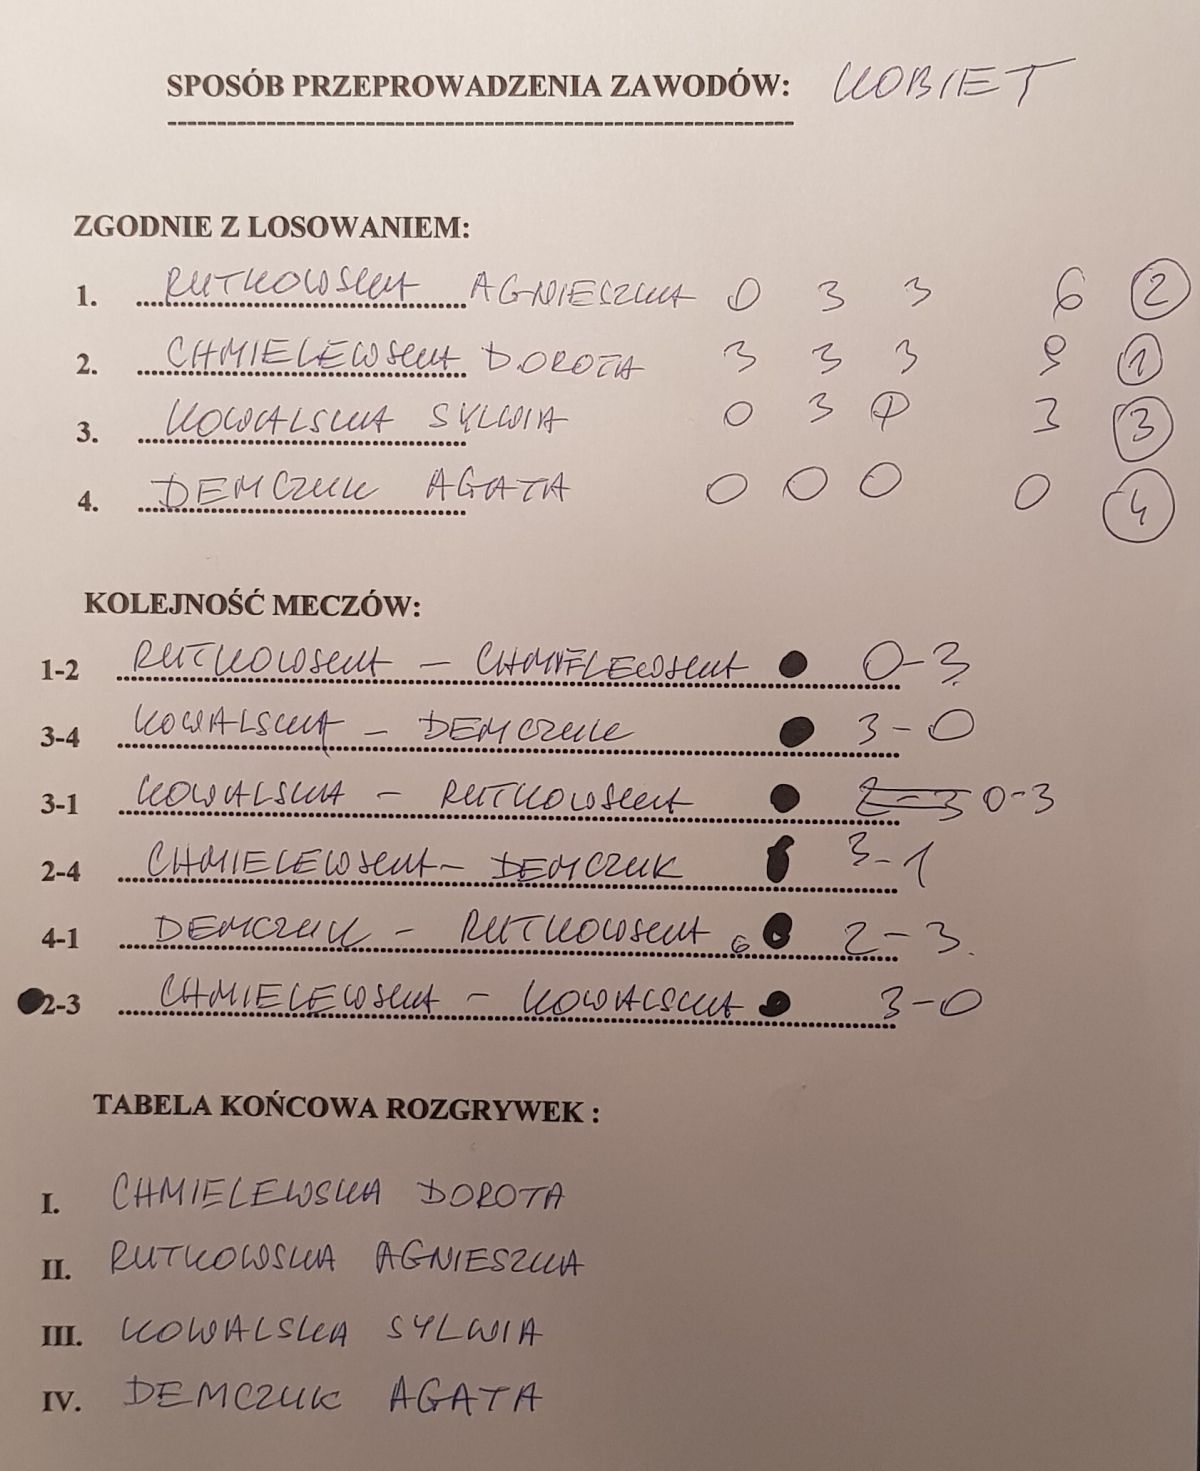 SPOSÓB PRZEPROWADZENIA ZAWODÓW: KOBIET
ZGODNIE Z LOSOWANIEM:
1. RUTKOWSKA AGNIESZKA 0 3 3 6 2
2. CHMIELEWSKA DOROTA 3 3 3 9 1
3. KOWALSKA SYLWIA 0 3 0 3 3
4. DEMCZUK AGATA 0 0 0 0 4
KOLEJNOŚĆ MECZÓW:
1-2 RUTKOWSKA - CHMIELEWSKA 0-3
3-4 KOWALSKA - DEMCZUK 3-0
3-1 KOWALSKA - RUTKOWSKA 2-3 0-3
2-4 CHMIELEWSKA - DEMCZUK 3-1
4-1 DEMCZUK - RUTKOWSKA 6 2-3.
2-3 CHMIELEWSKA - KOWALSKA 3-0
TABELA KOŃCOWA ROZGRYWEK :
I. CHMIELEWSKA DOROTA
II. RUTKOWSKA AGNIESZKA
III. KOWALSKA SYLWIA
IV. DEMCZUK AGATA